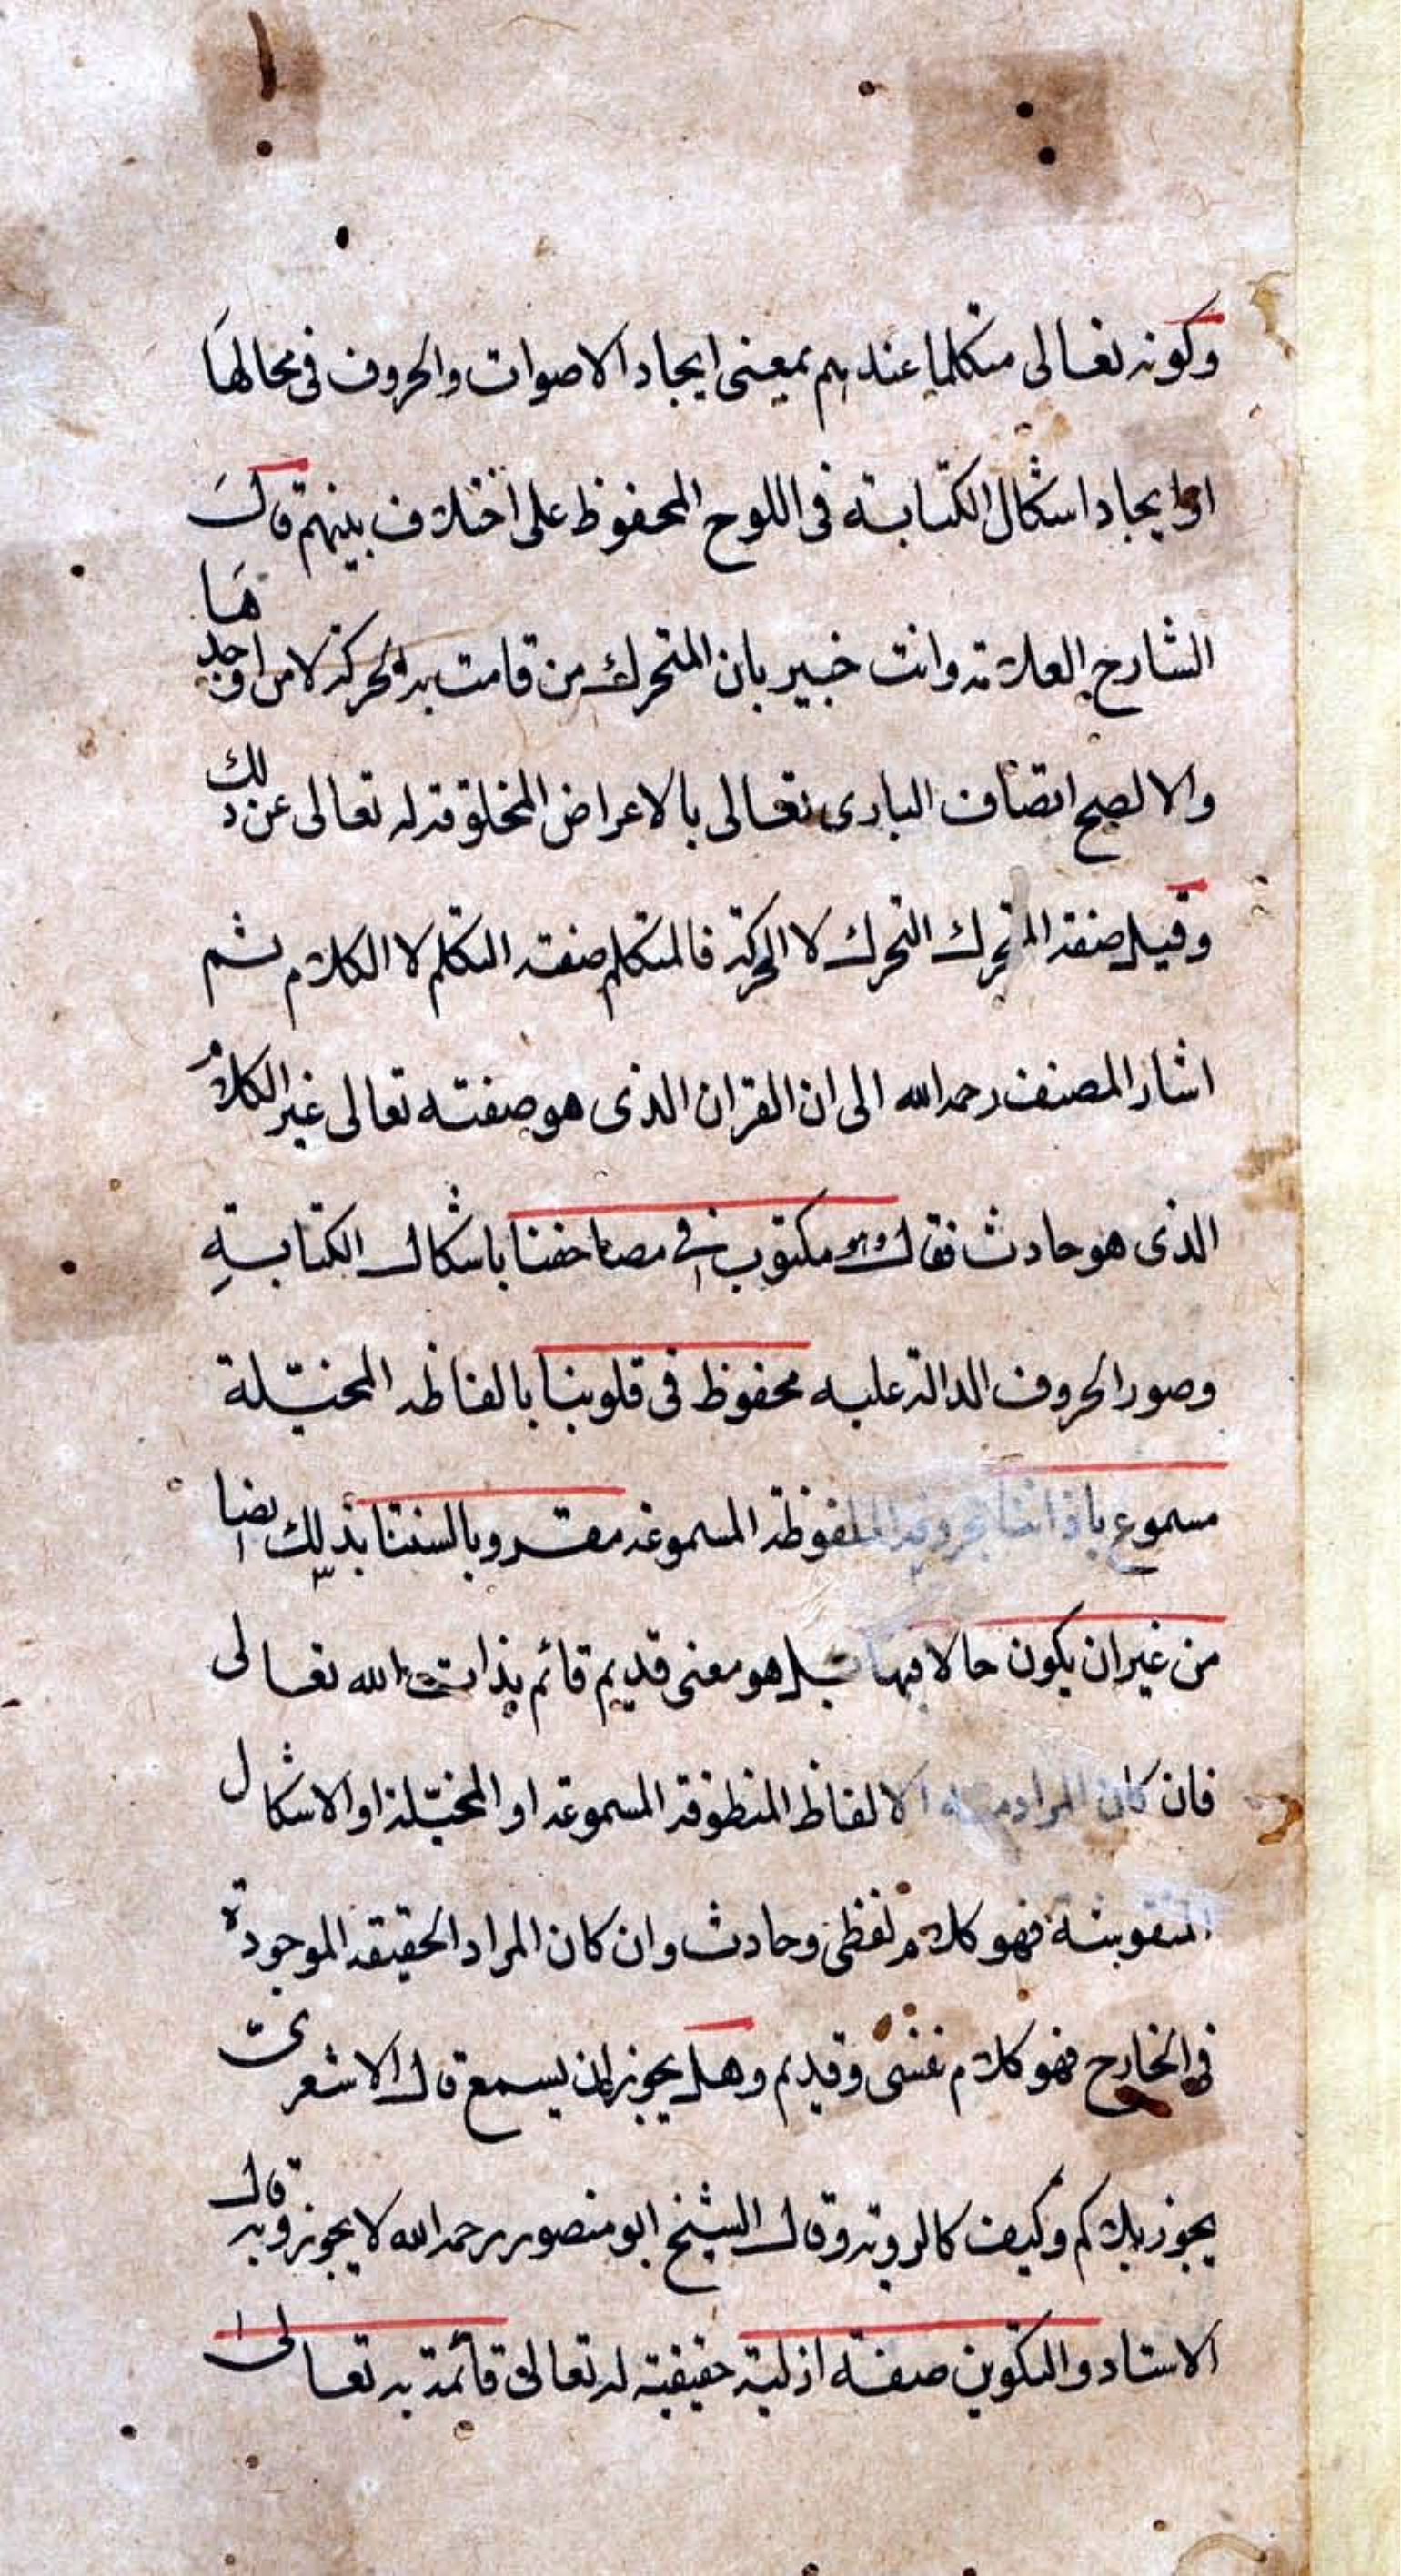 وكونه تعالى متكلما عندهم بمعنى ايجاد الاصوات والحروف فى محالها
او ايجاد اشكال الكتابة فى اللوح المحفوظ على اختلاف بينهم قال
الشارح العلامة وانت خبير بان المتحرك من قامت به الحركة لا من اوجدها
والا لصح اتصاف البارى تعالى بالاعراض المخلوقة له تعالى عن ذلك
وقيل صفة المتحرك التحرك لا الحركة فالمتكلم صفته التكلم لا الكلام ثم
اشار المصنف رحمه الله الى ان القران الذى هو صفته تعالى غير الكلام
الذى هو حادث فقال وهو مكتوب فى مصاحفنا باشكال الكتابة
وصور الحروف الدالة عليه محفوظ فى قلوبنا بالفاظه المخيّلة
مسموع باذاننا بحروفه الملفوظة المسموعة مقرو بالسنتنا بذلك ايضا
من غير ان يكون حالا فيها بل هو معنى قديم قائم بذات الله تعالى
فان كان المراد منه الالفاظ المنطوقة المسموعة او المخيّلة او الاشكال
المنقوشة فهو كلام لفظى وحادث وان كان المراد الحقيقة الموجودة
فى الخارج فهو كلام نفسى وقديم وهل يجوز ان يسمع قال الاشعرىّ
يجوز بلا كم وكيف كالروية وقال الشيخ ابو منصور رحمه الله لا يجوز وبه قال
الاستاد والتكوين صفة ازلية حقيقية له تعالى قائمة به تعالى